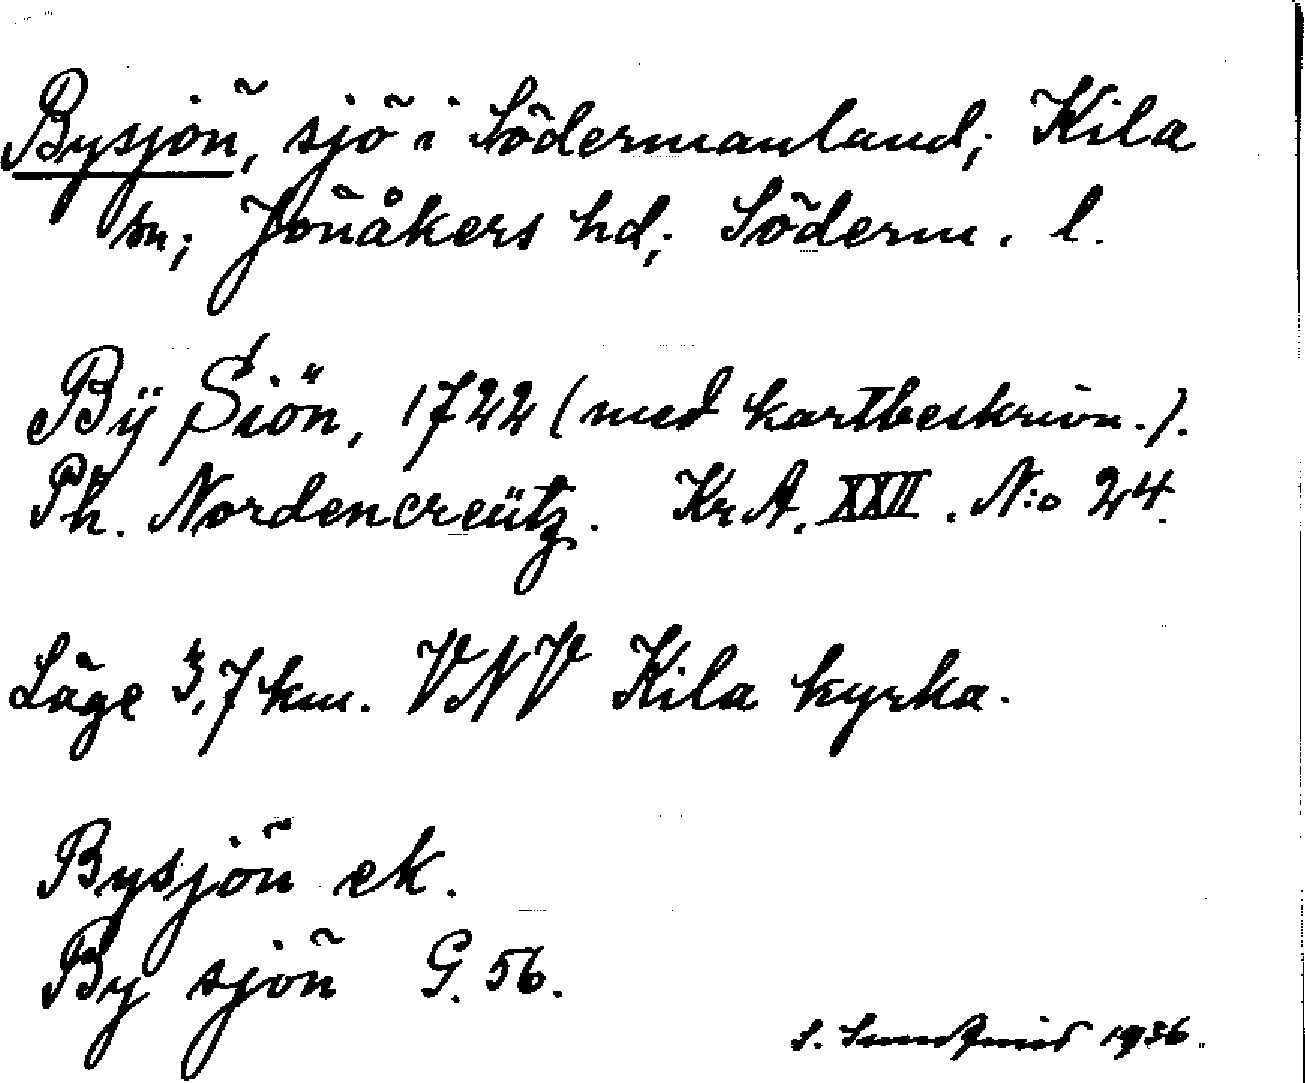 Bysjön, sjö i Södermanland; Kila
sn; Jönåkers hd; Söderm. l.
Bÿ Siön, 1722 (med kartbeskrivn.).
Ph. Nordencreütz. Kr. A. XXII. N:o 24.
Läge 3,7 km. VNV Kila kyrka.
Bysjön ek.
By sjön G. 56.
S. 1936.